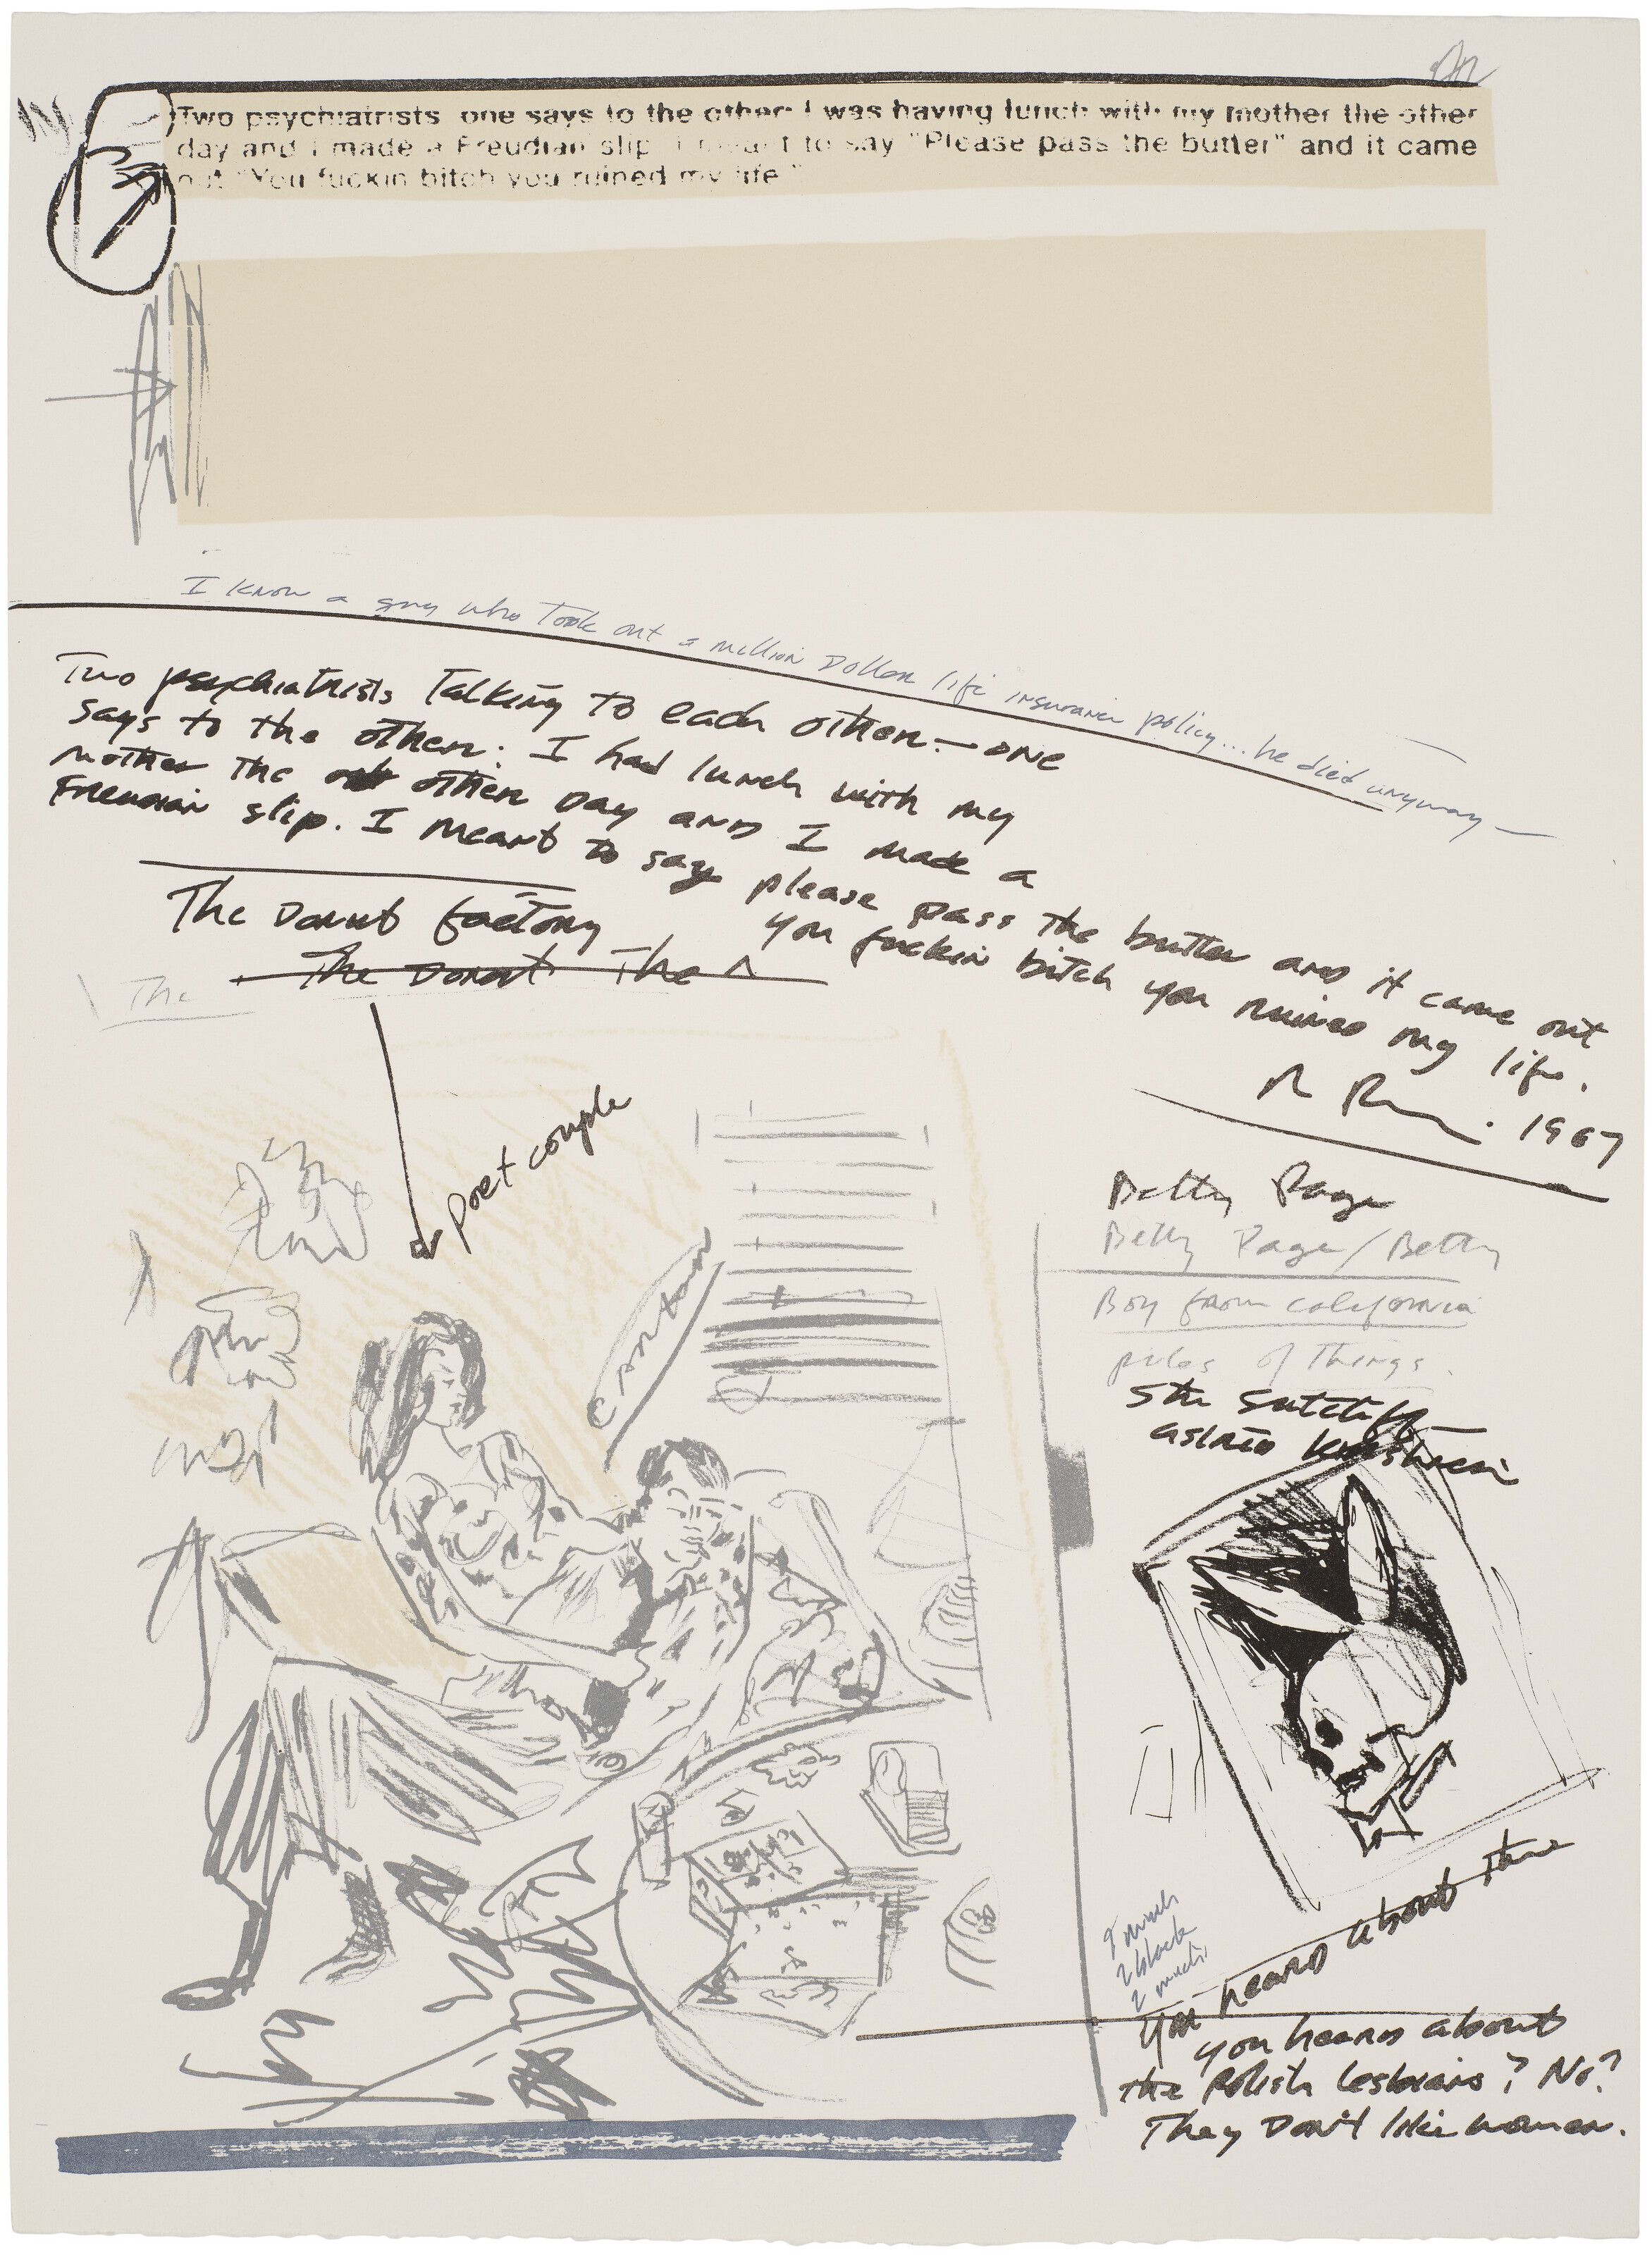 Two psychiatrists one says to the other: I was having lunch with my mother the other
day and I made a Freudian slip I meant to say "Please pass the butter" and it came
out "You fuckin bitch you ruined my life"
I know a guy who took out a million Dollar life insurance policy... he died anyway —
Two psychiatrists Talking to each other — one
says to the other: I had lunch with my
mother the other Day and I made a
Freudian slip. I meant to say please pass the butter and it came out
you fuckin bitch you ruined my life.
R 1967
The Donut factory
The Donut The
The
poet couple
cartoon
Betty Page
Betty Page / Betty
Boy from california
piles of Things.
Stu Sutcliff —
astrid
2 black
you heard about the
you heard about
the Polish lesbians? No?
They Don't like women.